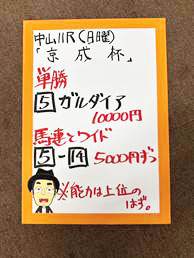 中山11R(日曜)
「京成杯」
単勝
5 ガルダイア
10000円
馬連とワイド
5-14 5000円ずつ
※能力は上位の
はず。